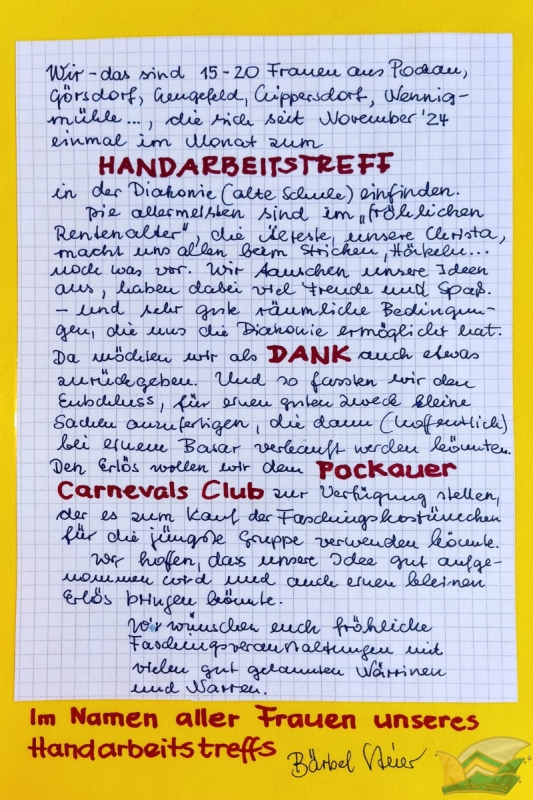 Wir – das sind 15-20 Frauen aus Pockau,
Görsdorf, Lengefeld, Lippersdorf, Wennig-
mühle..., die sich seit November '24
einmal im Monat zum
HANDARBEITSTREFF
in der Diakonie (alte Schule) einfinden.
Die allermeisten sind im „fröhlichen
Rentenalter", die Älteste, unsere Christa,
macht uns allen beim Stricken, Häkeln...
noch was vor. Wir tauschen unsere Ideen
aus, haben dabei viel Freude und Spaß.
– und sehr gute räumliche Bedingun-
gen, die uns die Diakonie ermöglicht hat.
Da möchten wir als DANK auch etwas
zurückgeben. Und so fassten wir den
Entschluss, für einen guten Zweck kleine
Sachen anzufertigen, die dann (hoffentlich)
bei einem Basar verkauft werden könnten.
Den Erlös wollen wir dem Pockauer
Carnevals Club zur Verfügung stellen,
der es zum Kauf der Faschingskostümchen
für die jüngste Gruppe verwenden könnte.
Wir hoffen, dass unsere Idee gut aufge-
nommen wird und auch einen kleinen
Erlös bringen könnte.
Wir wünschen euch fröhliche
Faschingsveranstaltungen mit
vielen gut gelaunten Närrinen
und Narren.
Im Namen aller Frauen unseres
Handarbeitstreffs Bärbel